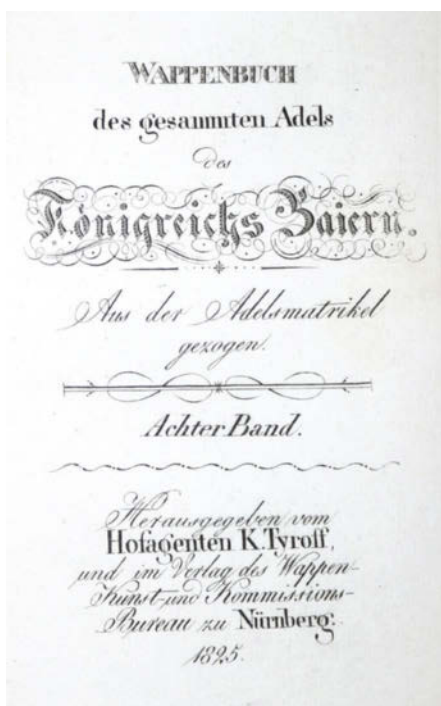 WAPPENBUCH
des gesammten Adels
des
Königreichs Baiern.
Aus der Adelsmatrikel
gezogen.
Achter Band.
Herausgegeben vom
Hofagenten K. Tyroff,
und im Verlag des Wappen-
Kunst- und Kommissions-
Bureau zu Nürnberg:
1825.